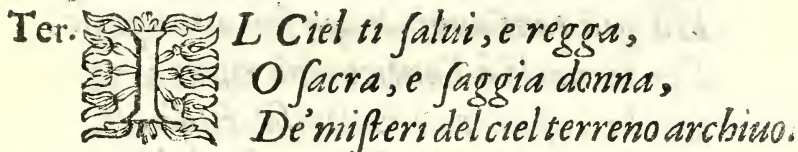 Ter. IL Ciel ti ſalui, e regga,
O ſacra, e ſaggia donna,
De' miſteri del ciel terreno archiuo.